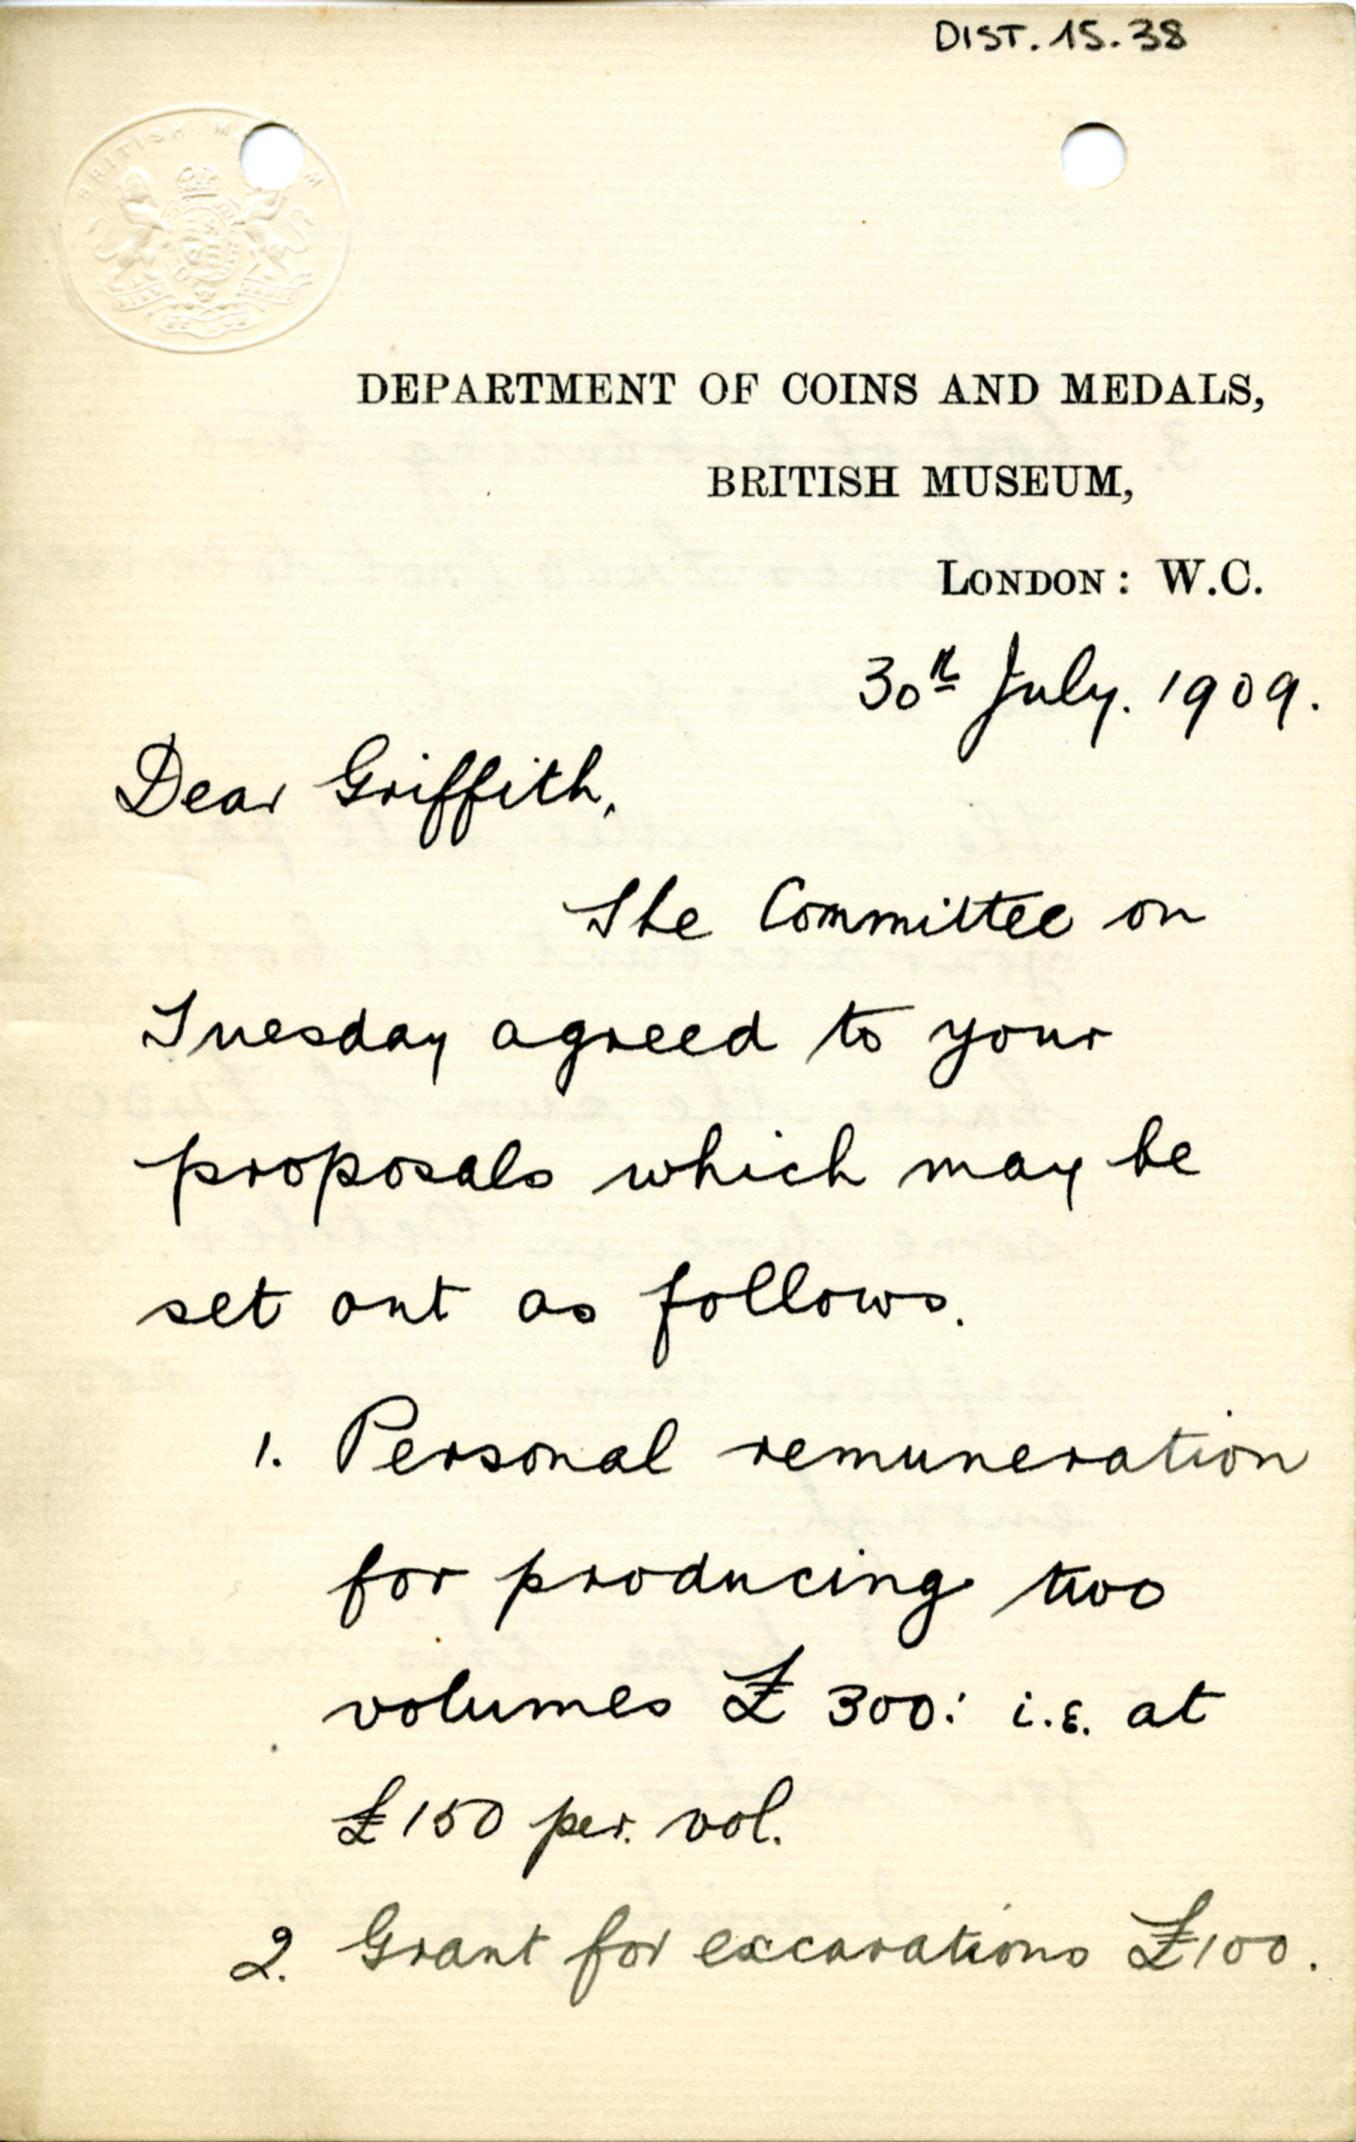 DIST.15.38
BRITISH M M
DEPARTMENT OF COINS AND MEDALS,
BRITISH MUSEUM,
LONDON: W.C.
30th July. 1909.
Dear Griffith,
The Committee on
Tuesday agreed to your
proposals which may be
set out as follows.
1. Personal remuneration
for producing two
volumes £300: i.e. at
£150 per. vol.
2. Grant for excavations £100.